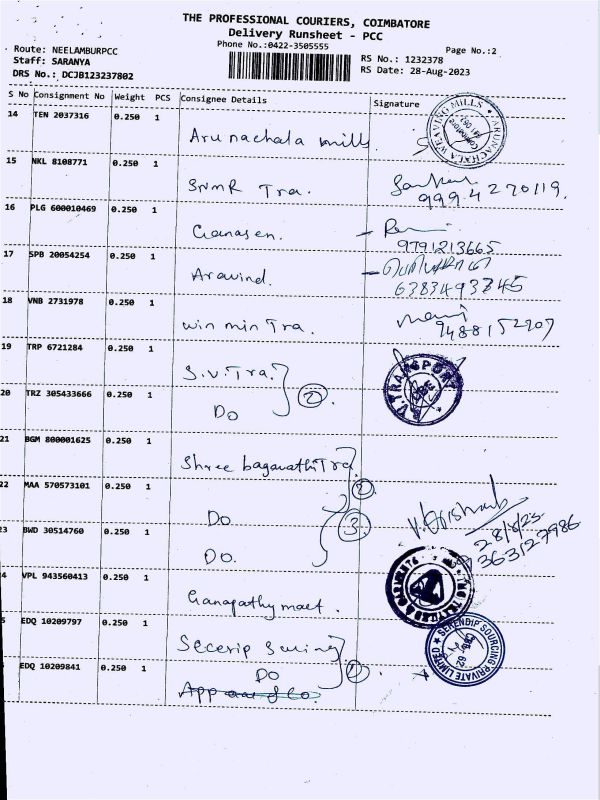 THE PROFESSIONAL COURIERS, COIMBATORE
Delivery Runsheet - PCC
Phone No.:0422-3505555
Page No.:2
Route: NEELAMBURPCC
Staff: SARANYA
DRS No.: DCJB123237802
RS No.: 1232378
RS Date: 28-Aug-2023
S No Consignment No Weight PCS Consignee Details Signature
14 TEN 2037316 0.250 1 Arunachala mills
ARUNACHALA WEAVING MILLS
15 NKL 8108771 0.250 1 SNMR Tra.
999 4 270119.
16 PLG 600010469 0.250 1 Ganasen.
9791213665
17 SPB 20054254 0.250 1 Aravind.
6383493845
18 VNB 2731978 0.250 1 win min Tra. mani
9488152207
19 TRP 6721284 0.250 1 S.V. Tra.
S.V. TRANSPORT
20 TRZ 305433666 0.250 1 Do 2.
21 BGM 800001625 0.250 1 Shree bagavathi Tra
22 MAA 570573101 0.250 1 Do 2.
3 BWD 30514760 0.250 1 Do. 3.
28/8/23
363127986
4 VPL 943560413 0.250 1 Ganapathy maet.
5 EDQ 10209797 0.250 1
SERENDIP SOURCING PRIVATE LIMITED
EDQ 10209841 0.250 1 Do